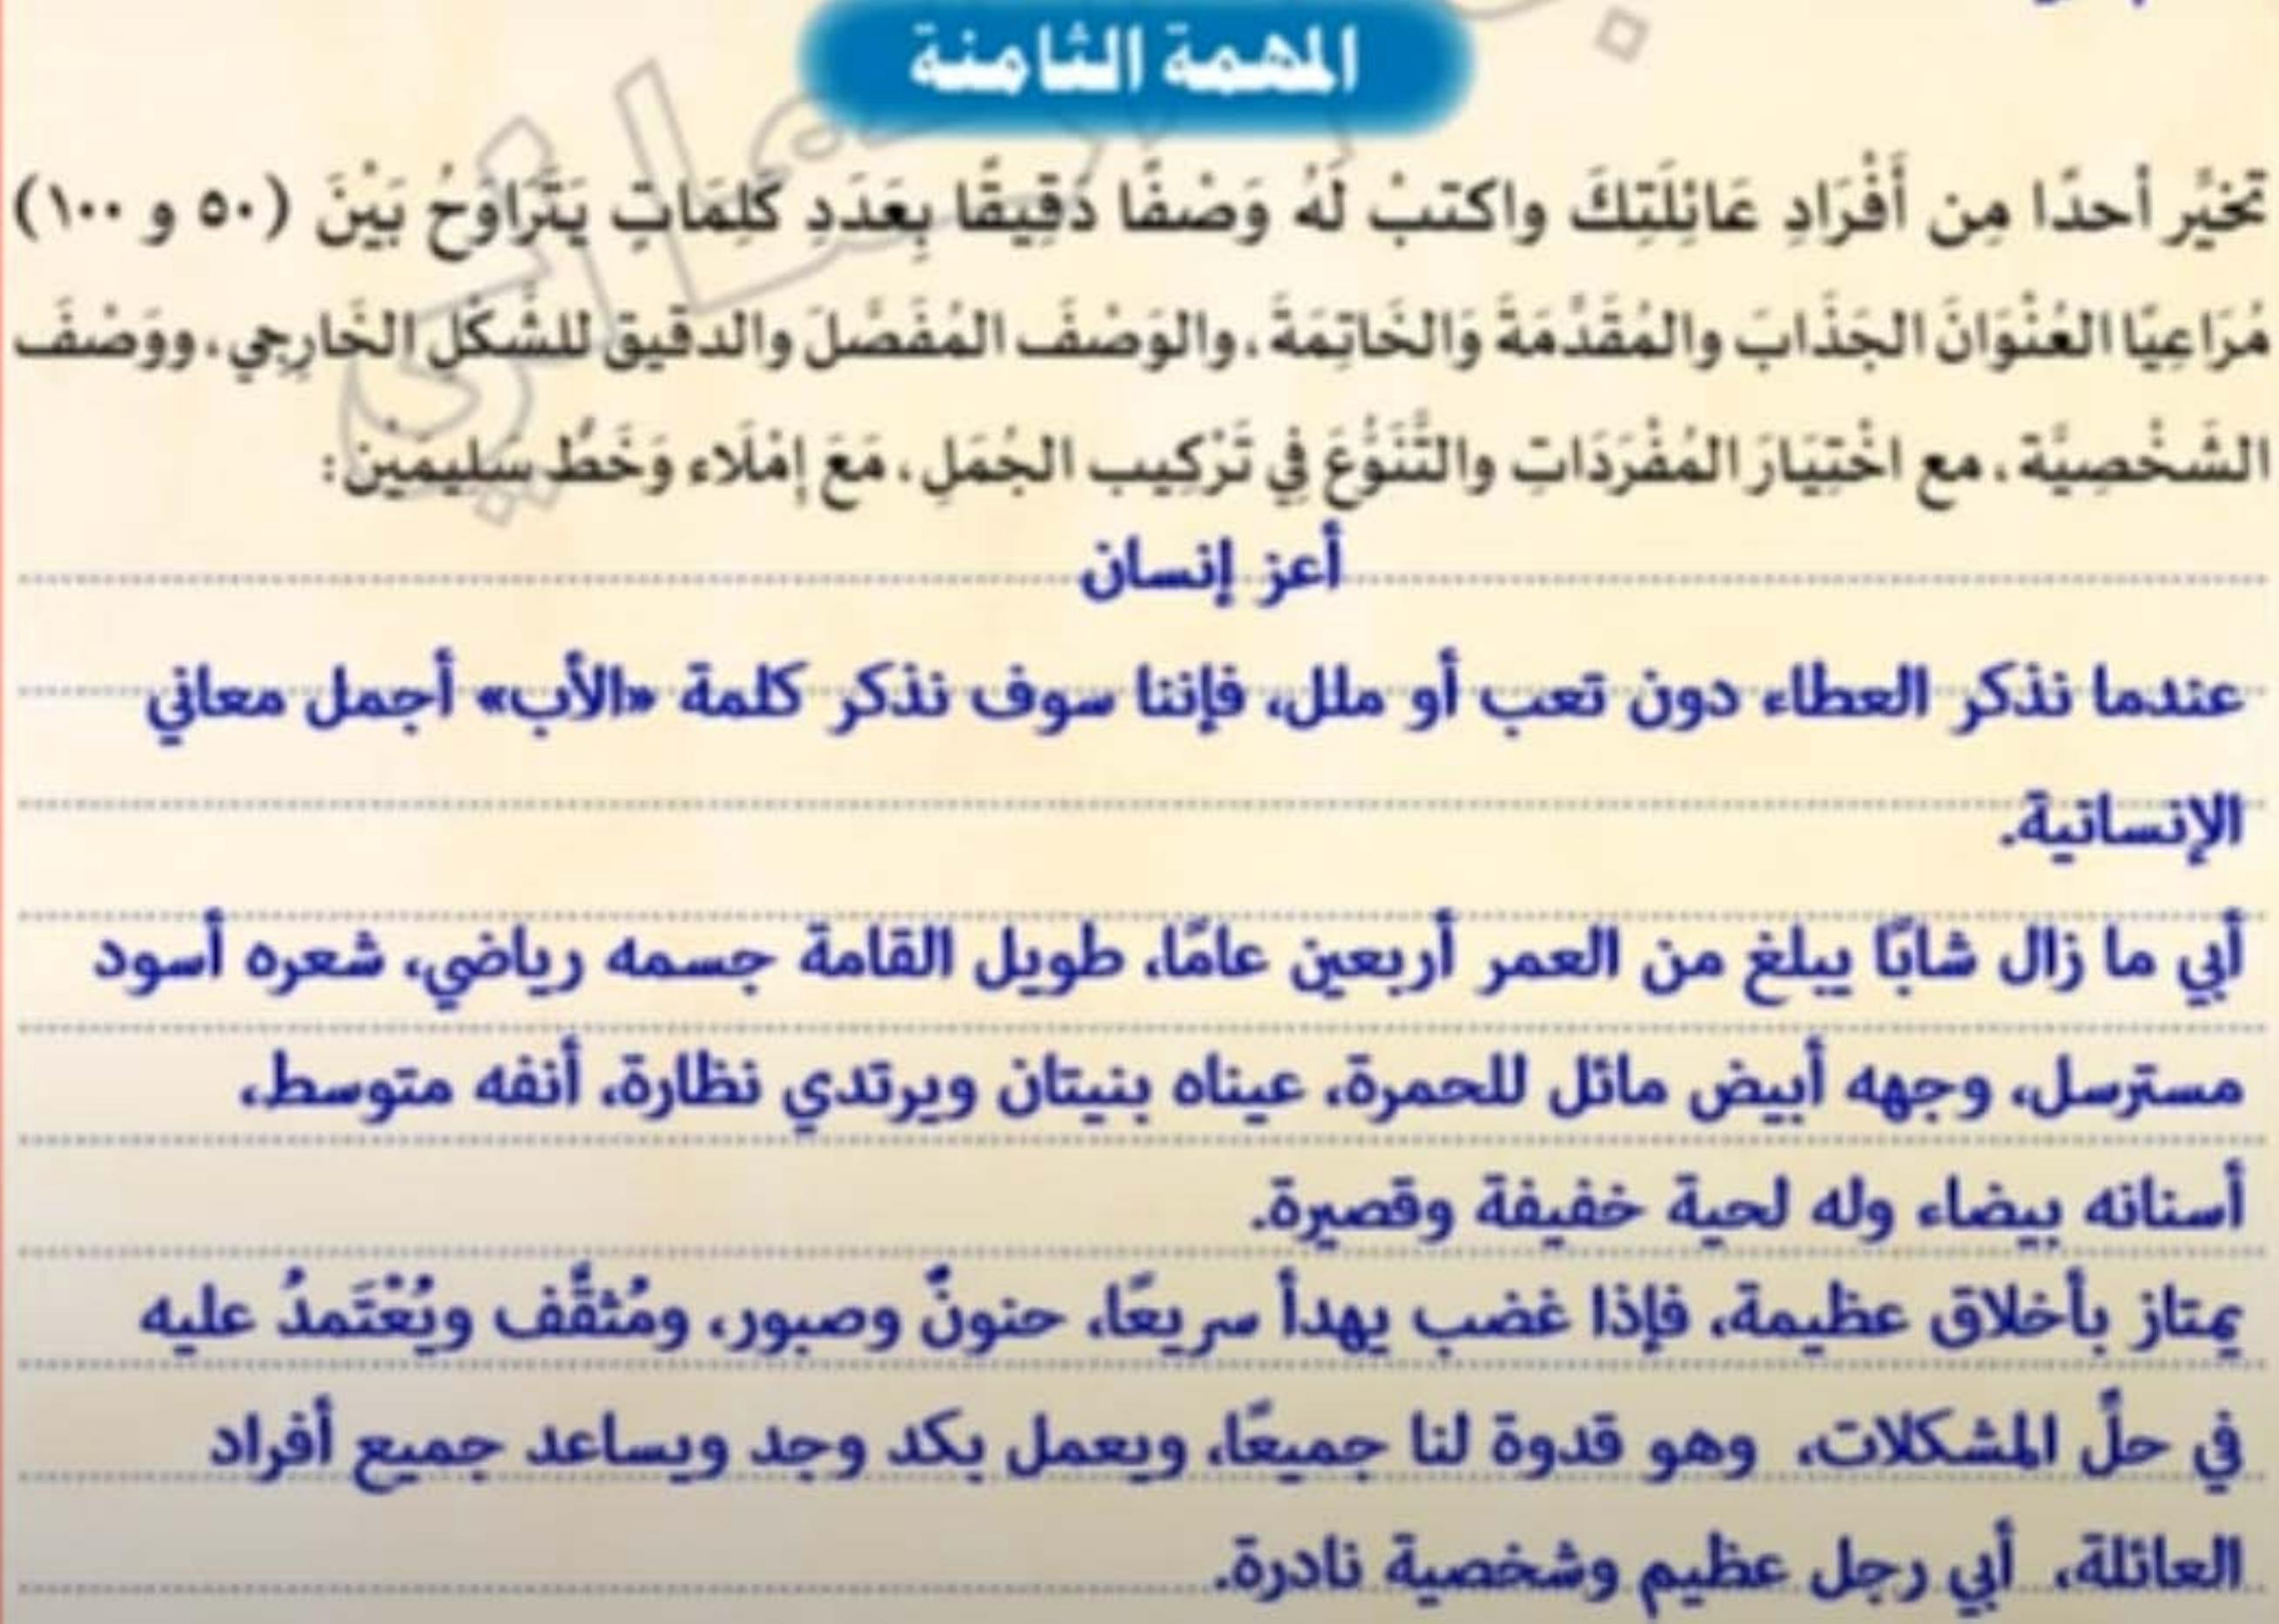 المهمة الثامنة
تخيَّر أحدًا مِن أَفْرَادِ عَائِلَتِكَ واكتبْ لَهُ وَصْفًا دَقِيقًا بِعَدَدِ كَلِمَاتٍ يَتَرَاوَحُ بَيْنَ (٥٠ و ١٠٠)
مُرَاعِيًا العُنْوَانَ الجَذَّابَ والمُقَدِّمَةَ وَالخَاتِمَةَ، والوَصْفَ المُفَصَّلَ والدقيق للشَّكْل الخَارِجِي، ووَصْفَ
الشَخْصِيَّة، مع اخْتِيَارَ المُفْرَدَاتِ والتَّنَوُّعَ فِي تَرْكِيب الجُمَلِ، مَعَ إِمْلَاء وَخَطٍّ سَلِيمَيْنْ:
أعز إنسان
عندما نذكر العطاء دون تعب أو ملل، فإننا سوف نذكر كلمة «الأب» أجمل معاني
الإنسانية.
أبي ما زال شابًا يبلغ من العمر أربعين عامًا، طويل القامة جسمه رياضي، شعره أسود
مسترسل، وجهه أبيض مائل للحمرة، عيناه بنيتان ويرتدي نظارة، أنفه متوسط،
أسنانه بيضاء وله لحية خفيفة وقصيرة.
يمتاز بأخلاق عظيمة، فإذا غضب يهدأ سريعًا، حنونٌ وصبور، ومُثقَّف ويُعْتَمدُ عليه
في حلِّ المشكلات، وهو قدوة لنا جميعًا، ويعمل بكد وجد ويساعد جميع أفراد
العائلة، أبي رجل عظيم وشخصية نادرة.